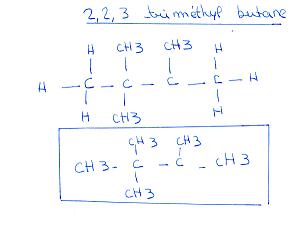 2,2,3 triméthyl butane
H CH3 CH3 H
H - C - C - C - C - H
H CH3 H
CH3 CH3
CH3 - C - C - CH3
CH3